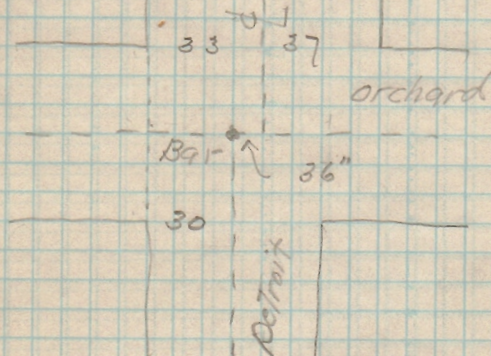 33 37
Orchard
Bar 36"
30
Detroit